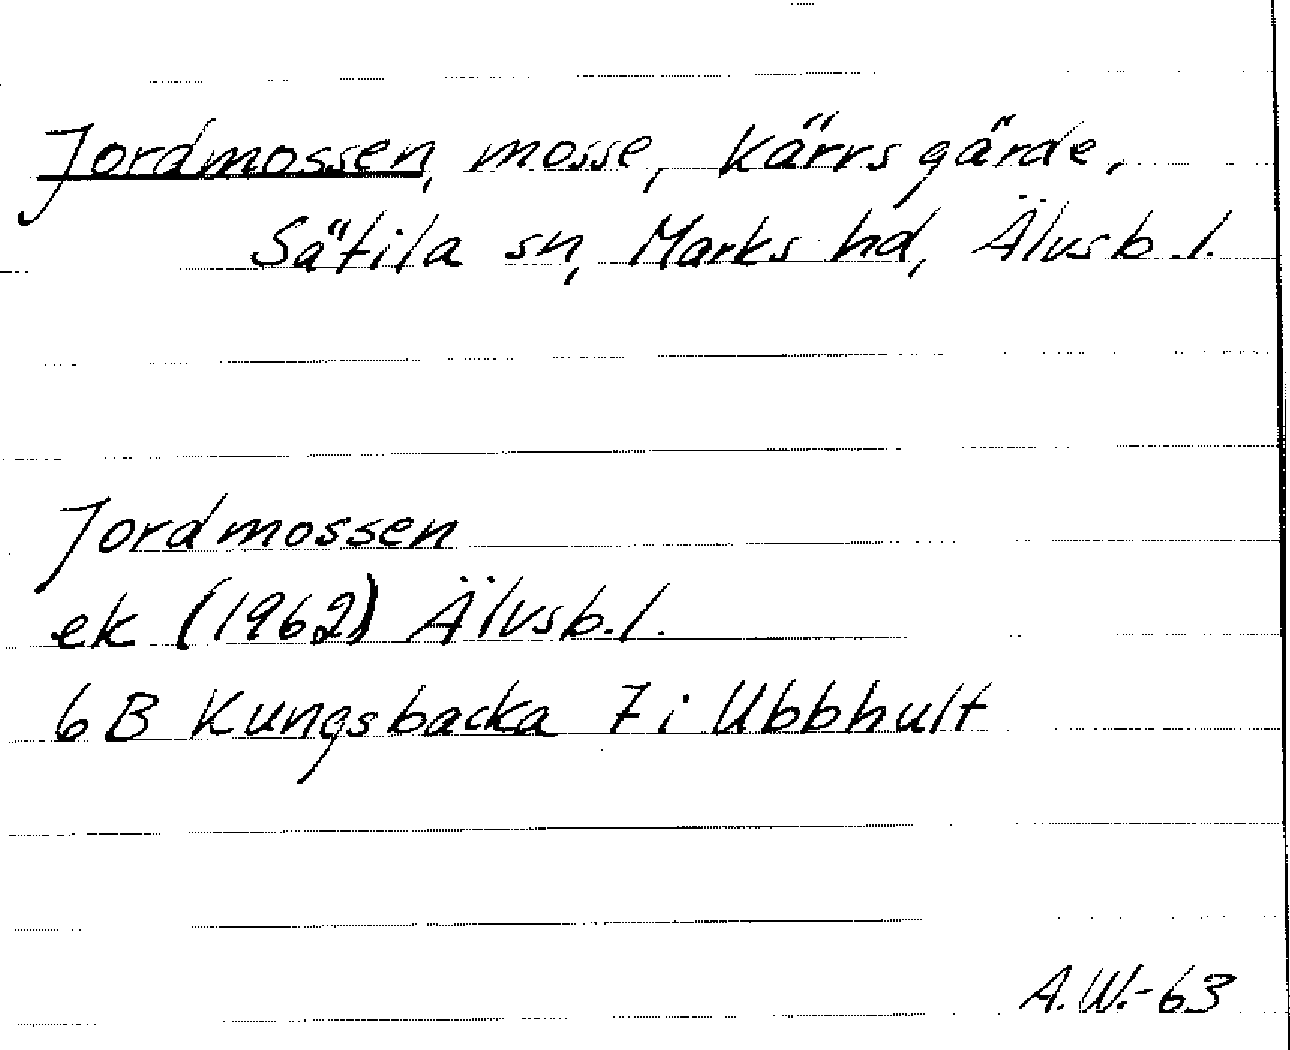 Jordmossen, mosse, Kärrsgärde,
Sätila sn, Marks hd, Älvsb.l.
Jordmossen
ek (1962) Älvsb.l.
6B Kungsbacka 7i Ubbhult
A.W.-63